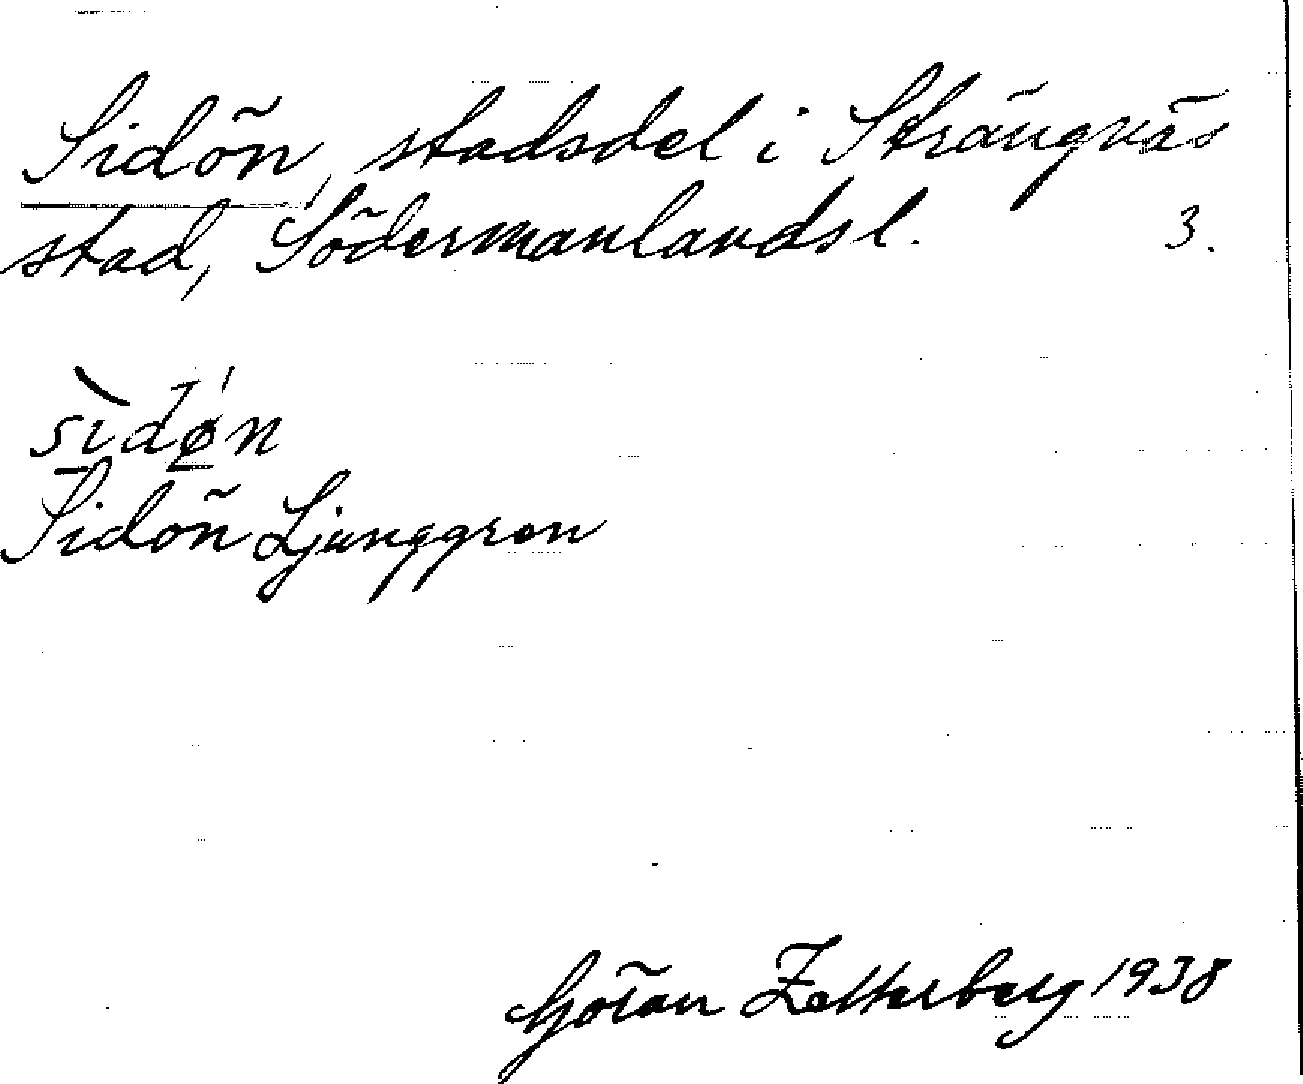 Sidön, stadsdel i Strängnäs
stad, Södermanlands l. 3.
sìdø̀n
Sidön Ljunggren
Göran Zetterberg 1938